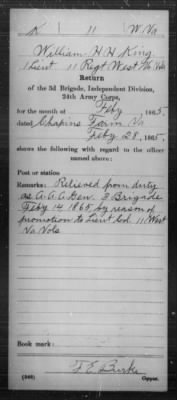 K 11 W.Va
William H. H. King
1 Lieut 11 Regt West Va Vols
Return
of the 3d Brigade, Independent Division,
24th Army Corps,
for the month of Feby, 1865,
dated Chapins Farm Va
Feby 28, 1865,
shows the following with regard to the officer
named above:
Post or station
Remarks: Relieved from duty
as A.A.A. Gen. 3 Brigade
Feby 14 1865 by reason of
promotion to Lieut Col 11 West
Va Vols
Book mark:
F E Burke
Copyist.